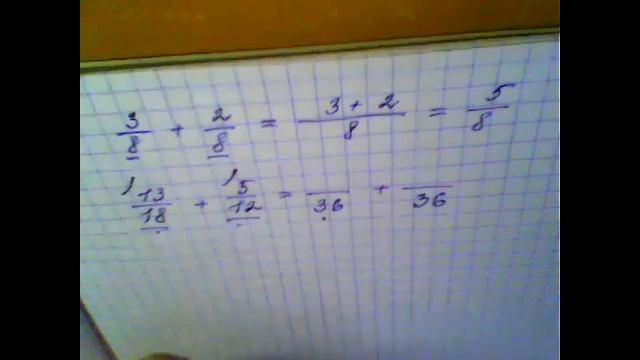 3/8 + 2/8 = 3 + 2/8 = 5/8
13/18 + 5/12 = /36 + /36